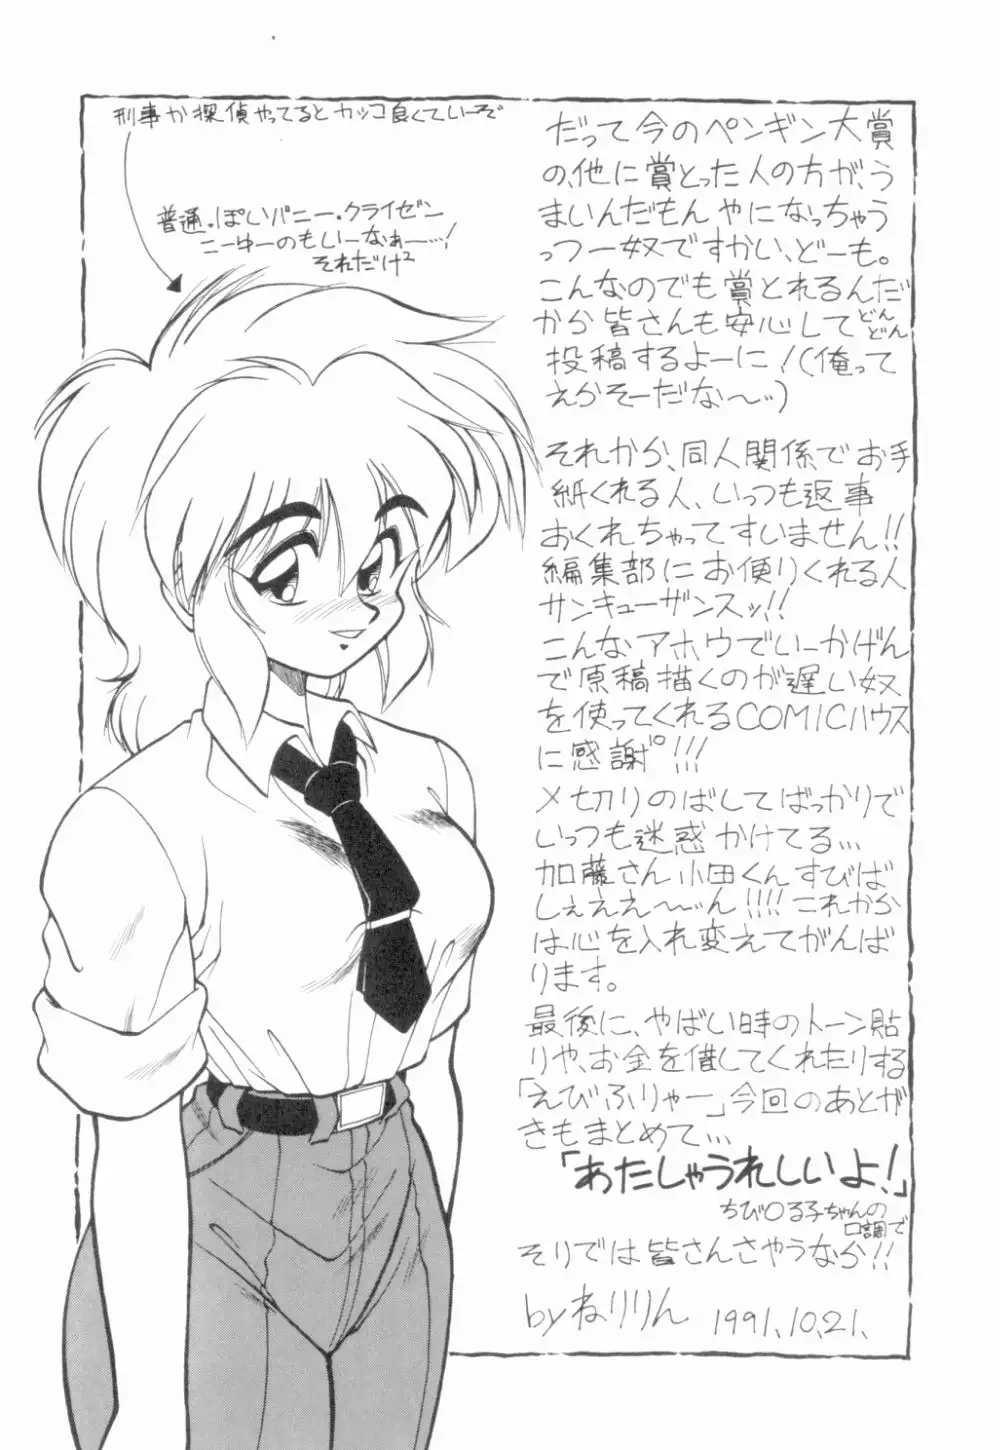 刑事か探偵やってるとカッコ良くていーぞ
普通っぽいバニー・クライゼン
こーゆーのもいーなぁー…!
それだけ²
だって今のペンギン大賞
の、他に賞とった人の方が、う
まいんだもん やになっちゃう
っつー奴ですかい、どーも。
こんなのでも賞とれるんだ
から皆さんも安心してどんどん
投稿するよーに!(俺って
えらそーだな〜…)
それから、同人関係でお手
紙くれる人、いつも返事
おくれちゃってすいません!!
編集部にお便りくれる人
サンキューザンスッ!!
こんなアホウでいーかげん
で原稿描くのが遅い奴
を使ってくれるCOMICハウス
に感謝°!!!
〆切りのばしてばっかりで
いっつも迷惑かけてる…
加藤さん小田くんすびば
しぇええ〜…ん!!!! これから
は心を入れ変えてがんば
ります。
最後に、やばい時のトーン貼
りや、お金を借してくれたりする
「えびふりゃー」今回のあとが
きもまとめて…
「あたしゃうれしいよ!」
ちび〇る子ちゃんの
口調で
そりでは皆さんさやうなら!!
by ねりりん 1991.10.21.